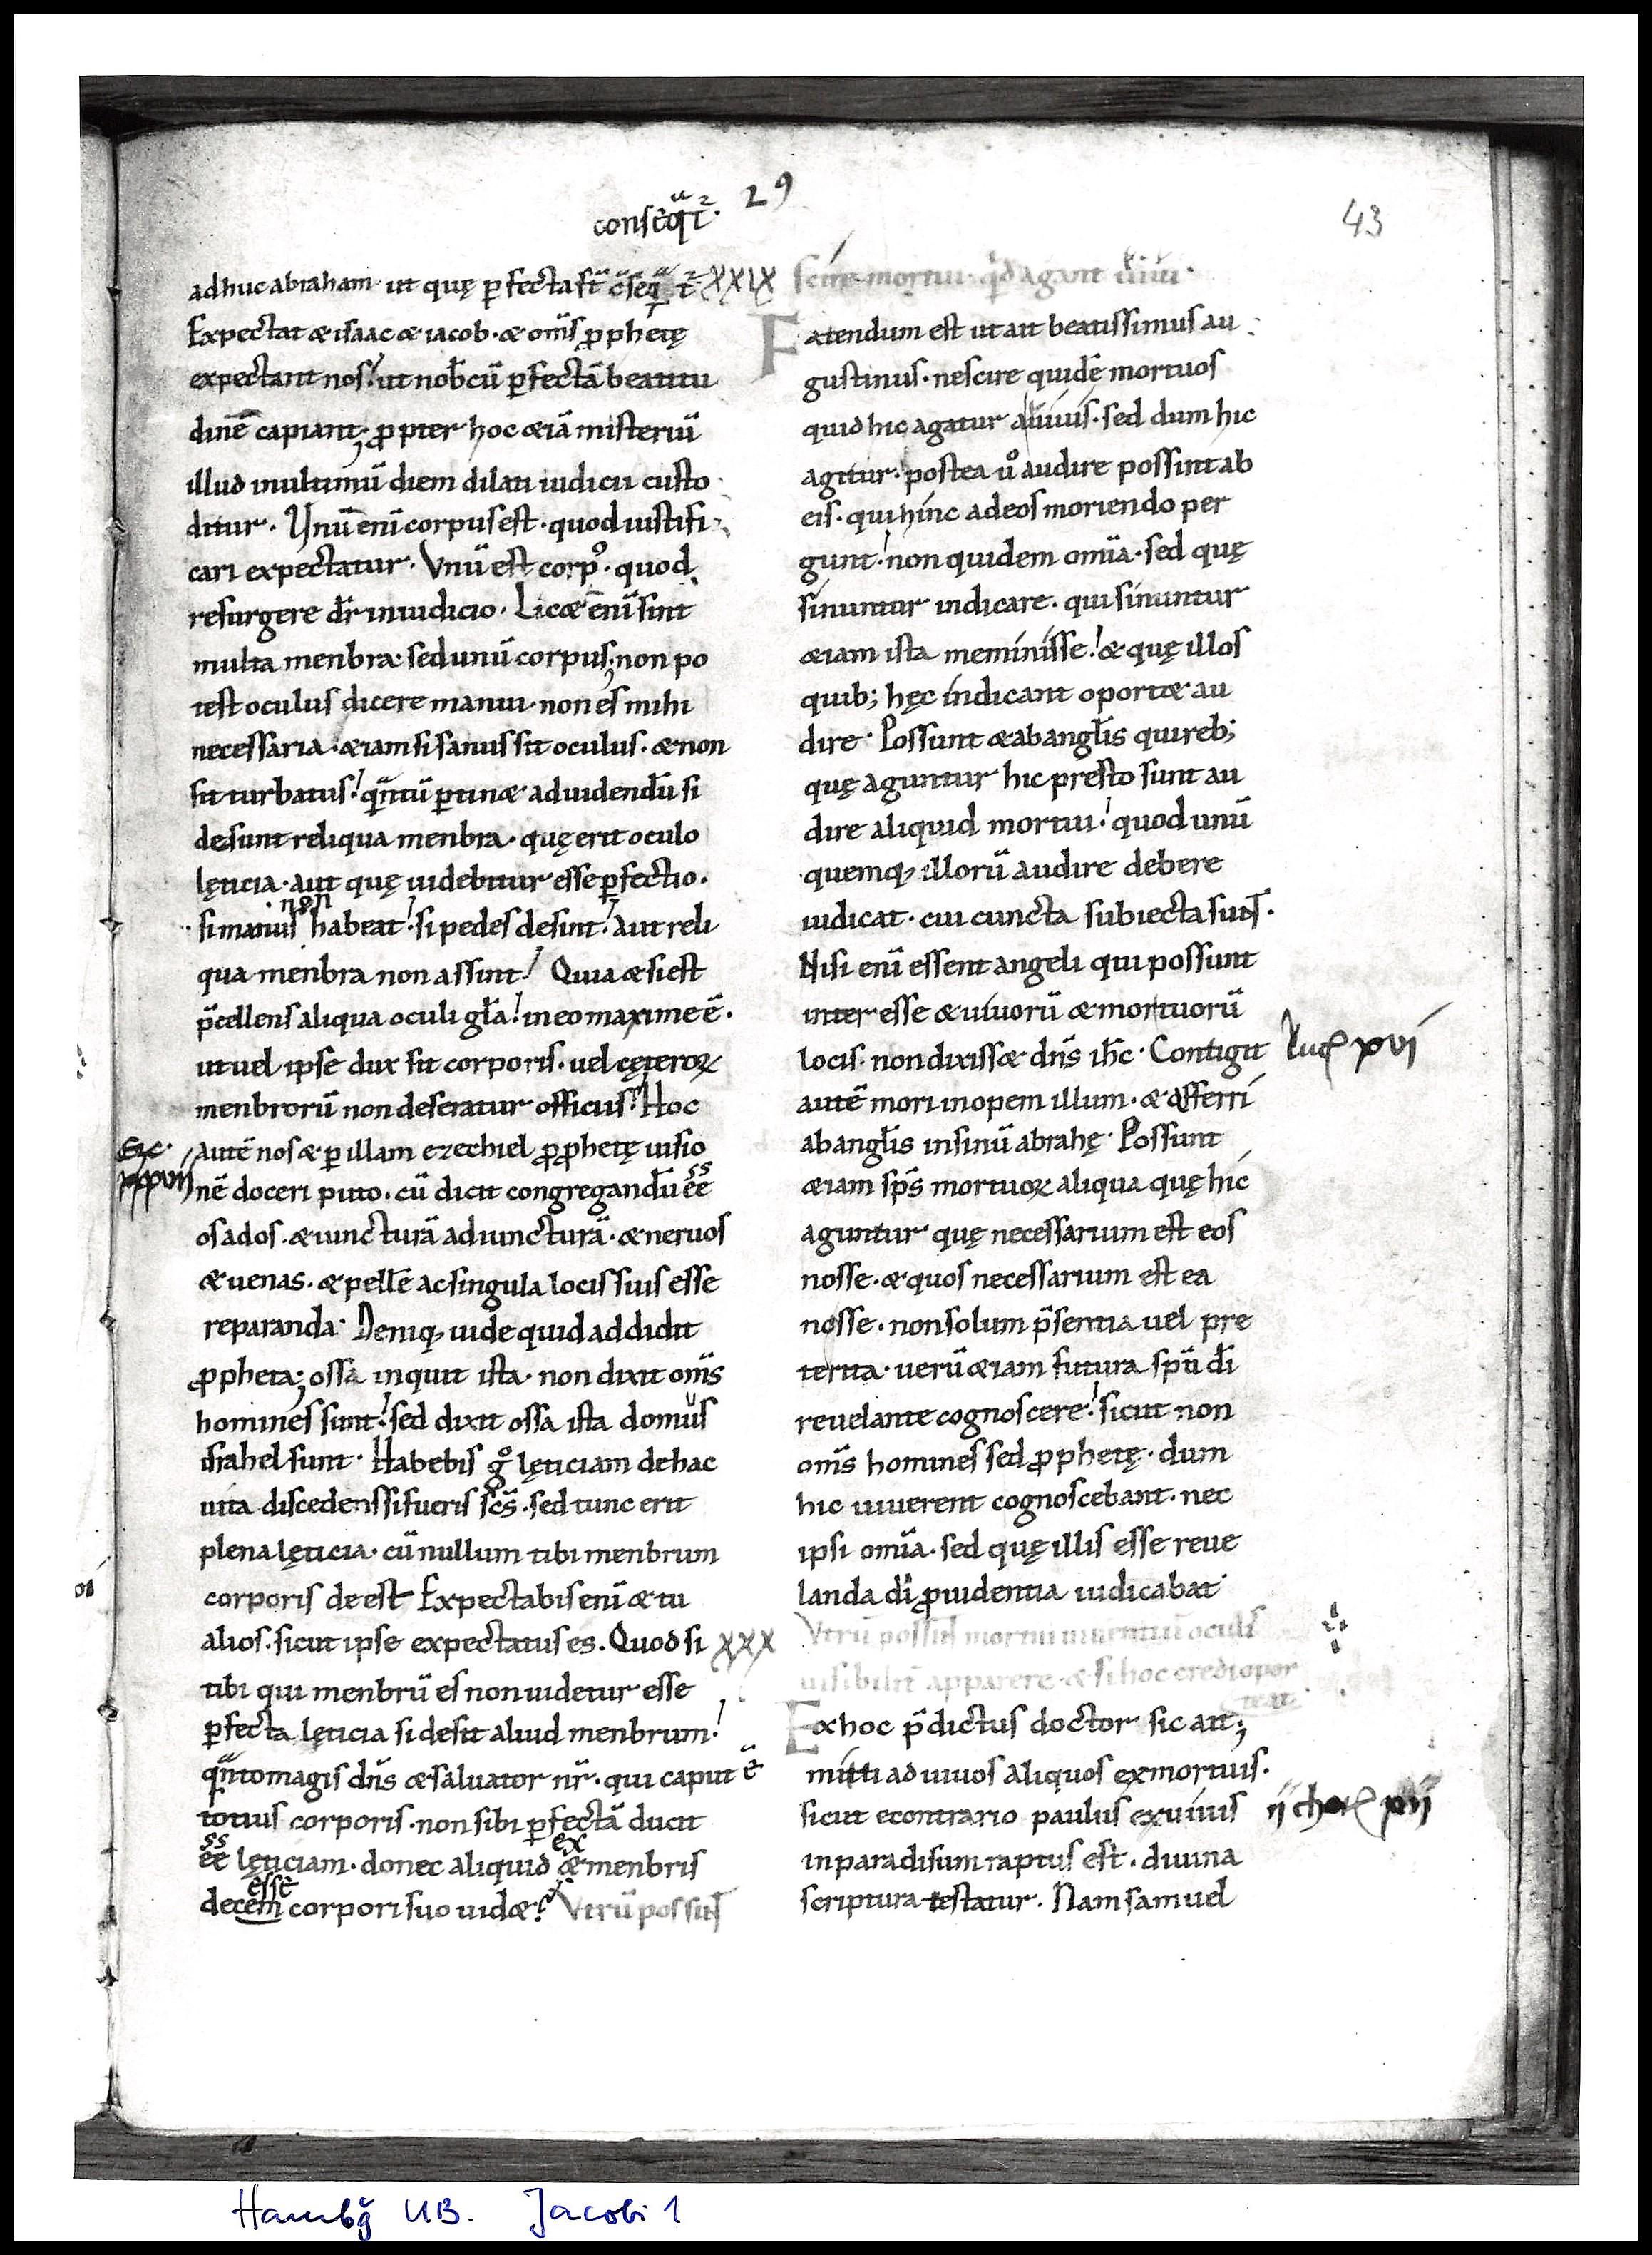 29
consequat̄ᷣ
43
adhuc abraham· ut quę ꝑfecta st̄ c̄seq̄t̄ᷣ XXIX
Expectat & isaac & iacob· & om̄s ꝓphetę
expectant nos! ut nob̄cū ꝑfectā beatitu
dinē capiant; ꝓpter hoc &iā misteriū
illud inultimū diem dilati iudicii custo
ditur. Unū enī corpus est· quod iustifi
cari expectatur. Vnū est corpꝰ· quod
resurgere dr̄ iniudicio. Lic& enī sint
multa menbra sed unū corpus; non po
test oculus dicere manui· non es mihi
necessaria· &iam si sanus sit oculus· & non
sit turbatus! qͣntū ꝑtin& aduidendū si
desunt reliqua menbra· quę erit oculo
lęticia· aut quę uidebitur esse ꝑfectio·
non
si manus habeat! si pedes desint! aut reli
qua menbra non assint! Quia & si est
p̄cellens aliqua oculi gl̄a! ineo maxime ē·
ut uel ipse dux sit corporis· uel cęteroꝝ
menbrorū non deseratur officiis! Hoc
Ezc· autē nos & ꝑ illam ezechiel ꝓphetę uisio
xxxvii nē doceri puto· cū dicit congregandū ēē
ss
os ados· & iuncturā ad iuncturā· & neruos
& uenas· & pellē ac singula locis suis esse
reparanda· Deniqꝫ uide quid addidit
ꝓpheta; ossa inquit ista· non dixit om̄s
homines sunt! sed dixit ossa ista domus
israhel sunt· Habebis gͦ lęticiam dehac
uita discedens si fueris sc̄s· sed tunc erit
plena lęticia· cū nullum tibi menbrum
corporis deest Expectabis enī & tu
alios· sicut ipse expectatus es. Quod si XXX
tibi qui menbrū es non uidetur esse
ꝑfecta lęticia si desit aliud menbrum!
qͣnto magis dn̄s & saluator nr̄· qui caput ē
totius corporis· non sibi ꝑfectā ducit
ss ex
ēē lęticiam· donec aliquid & menbris
esse
decem corpori suo uid&! Vtrū possint
scire mortui· qd̄ agant uiui·
Fatendum est ut ait beatissimus au
gustinus· nescire quidē mortuos
quid hic agatur auiuis· sed dum hic
agitur· postea uͦ audire possint ab
eis· qui hinc ad eos moriendo per
gunt! non quidem om̄ia· sed quę
sinuntur indicare· qui sinuntur
&iam ista meminisse! & quę illos
quib; hęc indicant oport& au
dire· Possunt & ab angl̄is qui reb;
quę aguntur hic presto sunt au
dire aliquid mortui! quod unū
quemqꝫ illorū audire debere
iudicat· cui cuncta subiecta sunt·
Nisi enī essent angeli qui possunt
inter esse & uiuorū & mortuorū
locis· non dixiss& dn̄s ih̄c· Contigit Luc̄ xvi
autē mori inopem illum· & afferri
ab angl̄is in sinū abrahę· Possunt
&iam sp̄s mortuoꝝ aliqua quę hic
aguntur quę necessarium est eos
nosse· & quos necessarium est ea
nosse· non solum p̄sentia uel pre
terita· uerū &iam futura spū dī
reuelante cognoscere! sicut non
om̄s homines sed ꝓphetę· dum
hic uiuerent cognoscebant· nec
ipsi om̄ia· sed quę illis esse reue
landa dī ꝓuidentia iudicabat·
Vtrū possint mortui uiuentiū oculis
uisibilit̄ apparere· & si hoc credi opor
teat·
Ex hoc p̄dictus doctor sic ait;
mitti ad uiuos aliquos ex mortuis·
sicut econtrario paulus ex uiuis ii chor̄ xii
in paradisum raptus est· diuina
scriptura testatur· Nam samuel
Hambg̃ UB. Jacobi 1